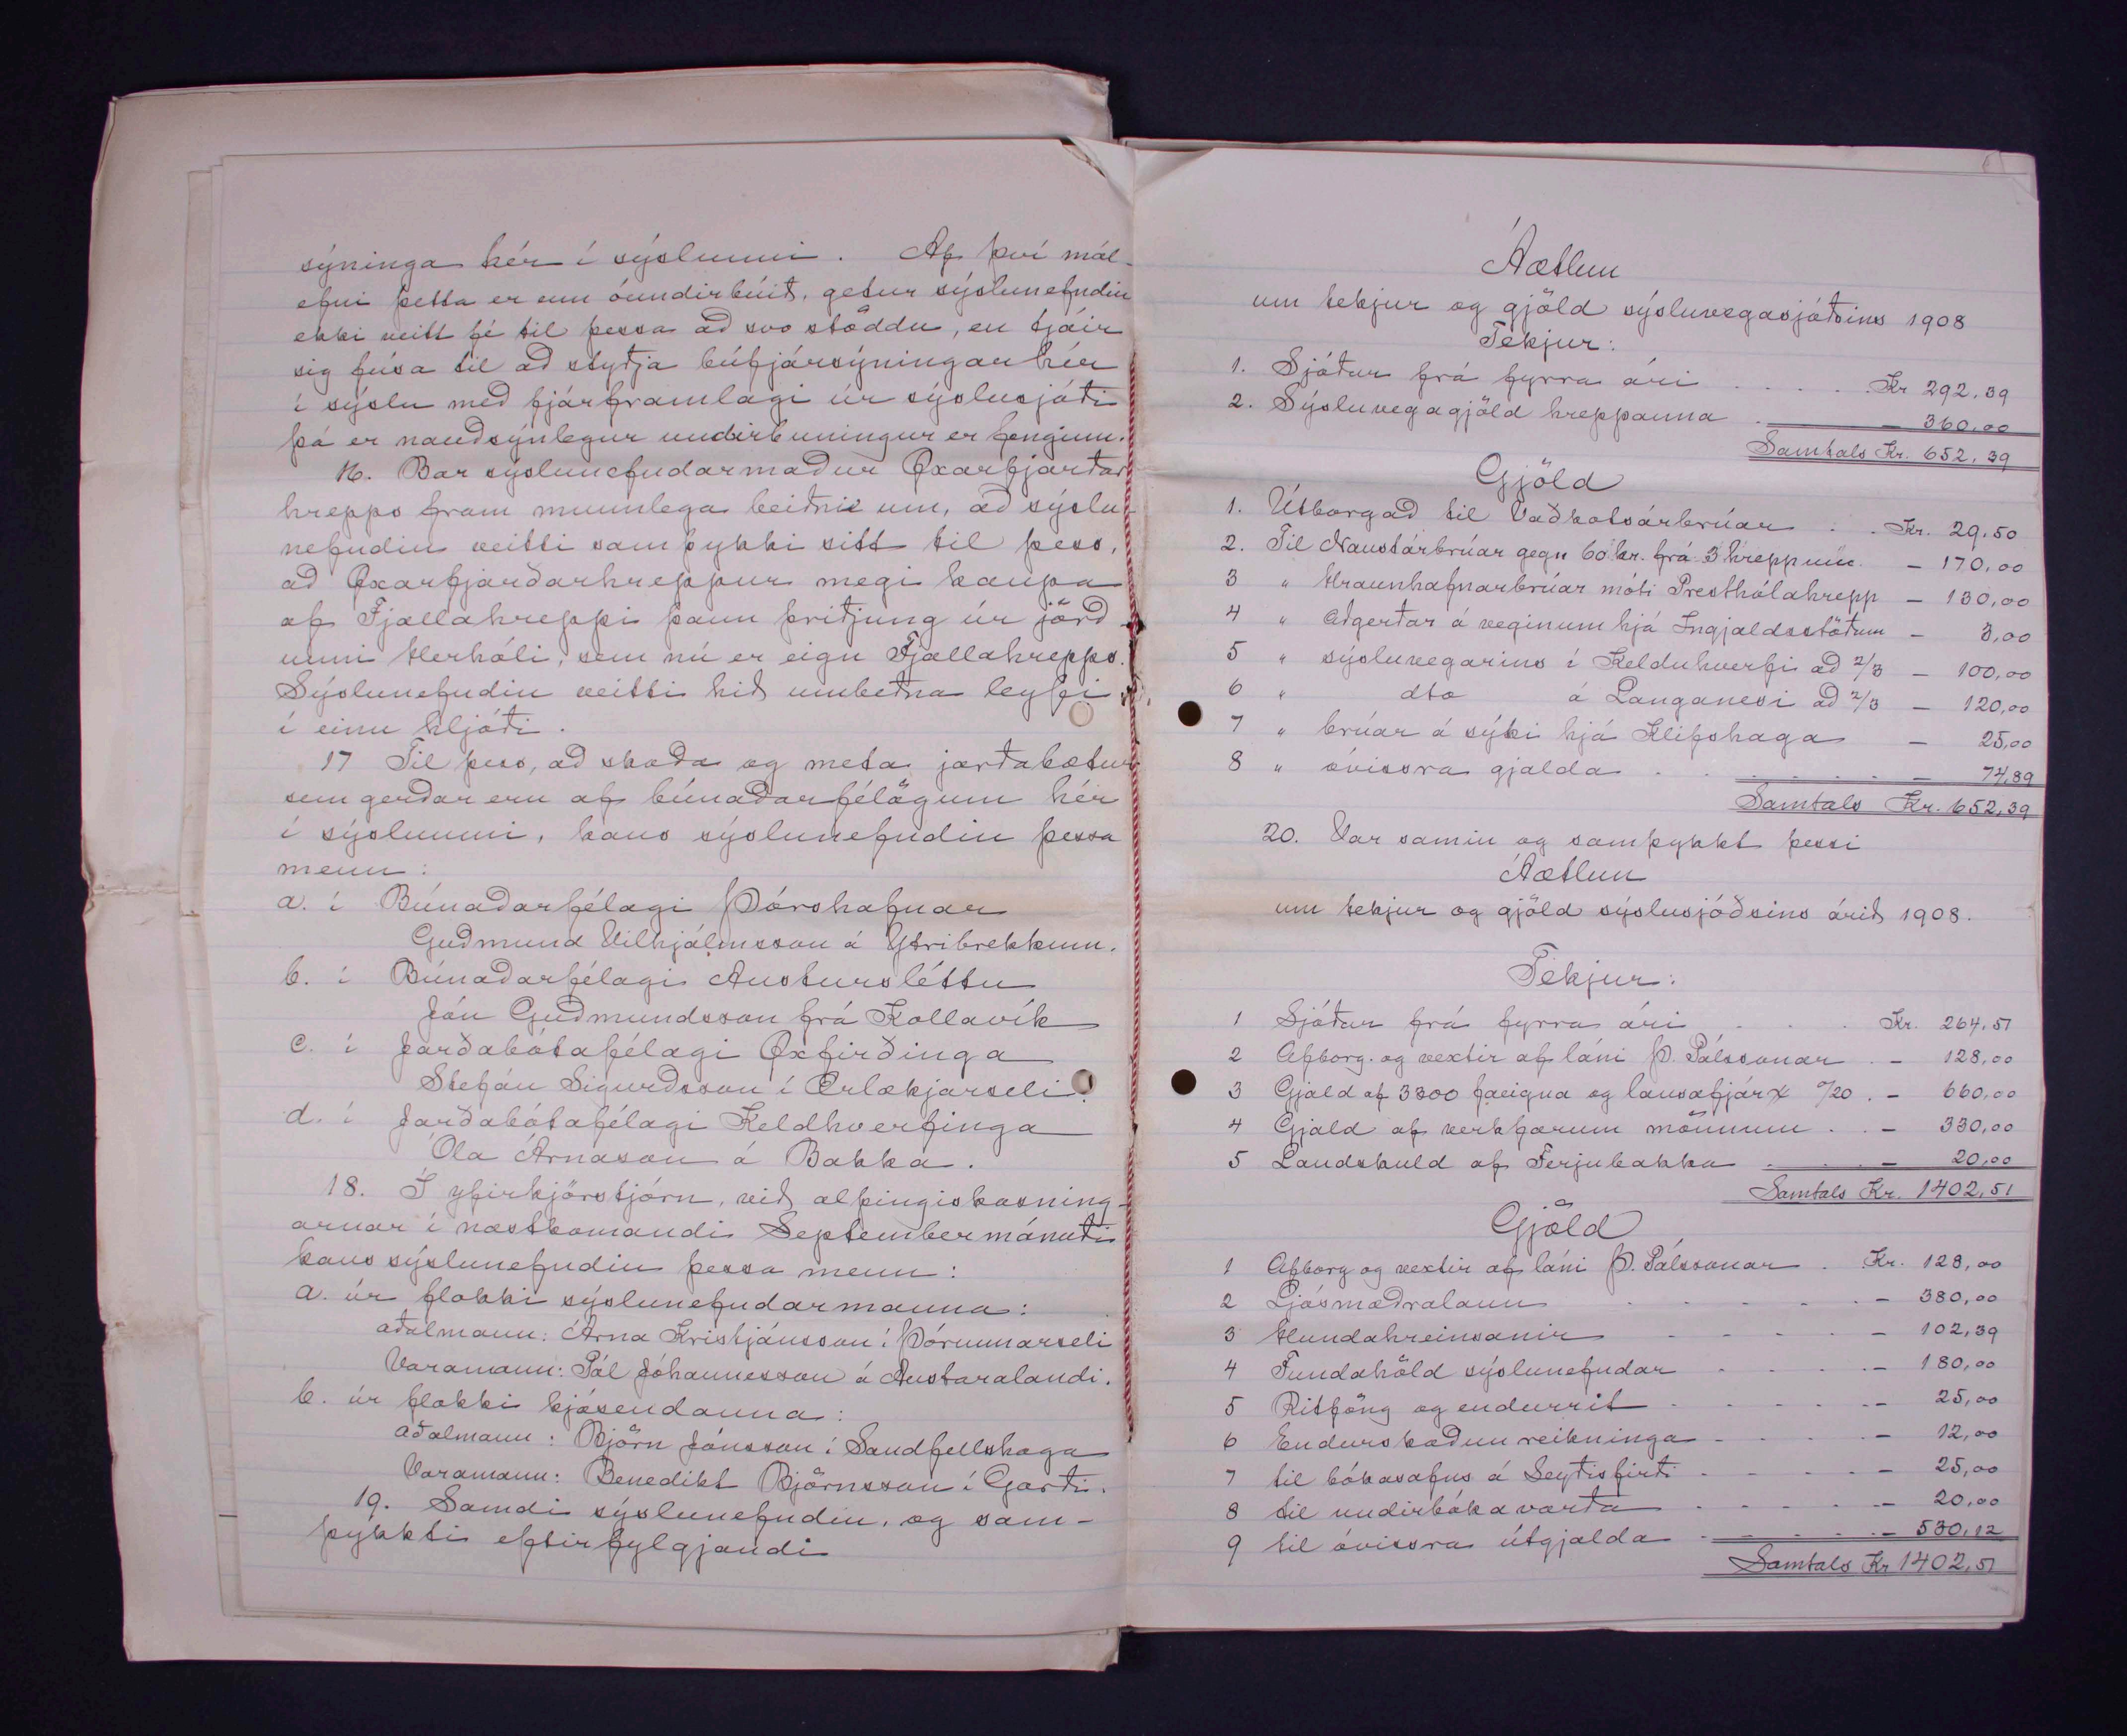 sýninga hér í sýslunni. Af því mál-
efni þetta er enn óundirbúið, getur sýslunefndin
ekki veitt fé til þessa að svo stöddu, en tjáir
sig fúsa til að styðja búfjársýningar hér
í sýslu með fjárframlagi úr sýslusjóði
þá er nauðsýnlegur undirbuningur er fenginn.
16. Bar sýslunefndarmaður Öxarfjarðar
hrepps fram munnlega beiðni um, að sýslu
nefndin veitti samþykki sitt til þess,
að Öxarfjarðarhreppur megi kaupa
af Fjallahreppi þann þriðjung úr jörð
unni Herhóli, sem nú er eign Fjallahrepps.
Sýslunefndin veitti hið umbeðna leyfi
í einu hljóði.
17 Til þess, að skoða og meta jarðabætur
sem gerðar eru af búnaðarfélögum hér
í sýslunni, kaus sýslunefndin þessa
menn:
a. í Búnaðarfélagi Þórshafnar
Guðmund Vilhjálmsson á Ytribrekkum.
b. í Búnaðarfélagi Austursléttu
Jón Guðmundsson frá Kollavík
c. í Jarðabótafélagi Öxfirðinga
Stefán Sigurðsson í Ærlækjarseli.
d. í Jarðabótafélagi Keldhverfinga
Óla Árnason á Bakka.
18. Í yfirkjörstjórn, við alþingiskosning-
arnar í næstkomandi Septembermánuði
kaus sýslunefndin þessa menn:
a. úr flokki sýslunefndarmanna:
aðalmann: Árna Kristjánsson í Þórunnarseli
Varamann: Pál Jóhannesson á Austaralandi.
b. úr flokki kjósendanna:
aðalmann: Björn Jónsson í Sandfellshaga
Varamann: Benedikt Björnsson í Garði.
19. Samdi sýslunefndin, og sam-
þykkti eftirfylgjandi
Áætlun
um tekjur og gjöld sýsluvegasjóðsins 1908
Tekjur:
1. Sjóður frá fyrra ári . . . . Kr 292,39
2. Sýsluvegagjöld hreppanna . — 360,00
Samtals Kr. 652,39
Gjöld
1. Útborgað til Vaðkotsárbrúar . . Kr. 29.50
2. Til Naustárbrúar gegn 60 kr. frá 3 hreppum. — 170,00
3 " Hraunhafnarbrúar móti Presthólahrepp — 130,00
4 " Aðgerðar á veginum hjá Ingjaldsstöðum — 3,00
5 " sýsluvegarins í Kelduhverfi að 2/3 — 100,00
6 " dto á Langanesi að 2/3 — 120,00
7 " brúar á sýki hjá Klifshaga — 25,00
8 " óvissra gjalda . . . . . . — 74,89
Samtals Kr. 652,39
20. Var samin og samþykkt þessi
Áætlun
um tekjur og gjöld sýslusjóðsins árið 1908.
Tekjur:
1 Sjóður frá fyrra ári . . . Kr. 264,51
2 Afborg. og vextir af láni Þ. Pálssonar . — 128,00
3 Gjald af 3300 fasteigna og lausafjár x /20 . — 660,00
4 Gjald af verkfærum mönnum . . — 330,00
5 Landskuld af Ferjubakka . . . — 20,00
Samtals Kr. 1402,51
Gjöld
1 Afborg og vextir af láni Þ. Pálssonar . Kr. 128,00
2 Ljósmæðralaun . . . . . — 380,00
3 Hundahreinsanir . . . . — 102,39
4 Fundahöld sýslunefndar . . . . — 180,00
5 Ritföng og endurrit . . . . . — 25,00
6 Endurskoðun reikninga . . . . — 12,00
7 til bókasafns á Seyðisfirði . . . . — 25,00
8 til undirbókavarða . . . . . — 20,00
9 til óvissra útgjalda . . . . . — 530,12
Samtals Kr 1402,51